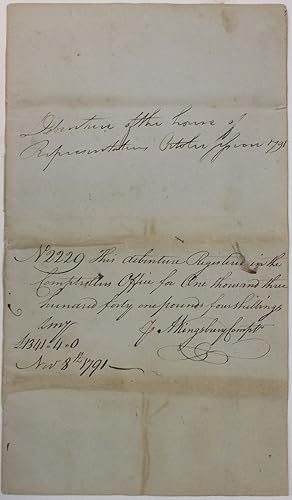 Debenture of the house of
Representatives October Session 1791
No 2229 This debenture Registered in the
Comptrollers Office for One thousand three
hundred forty one pounds four shillings
£1341-4-0
A Kingsbury Compt
Nov 8th 1791